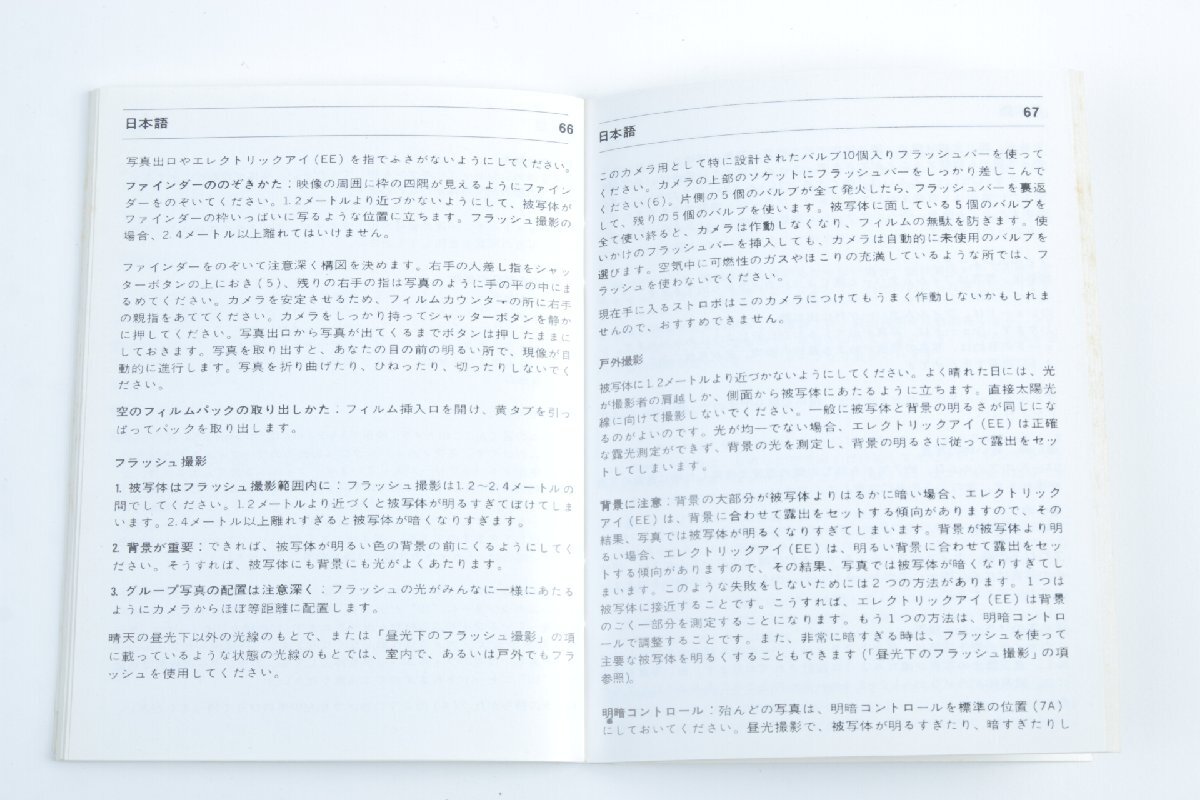 日本語
66
写真出口やエレクトリックアイ(EE)を指でふさがないようにしてください。
ファインダーののぞきかた：映像の周囲に枠の四隅が見えるようにファイン
ダーをのぞいてください。1.2メートルより近づかないようにして、被写体が
ファインダーの枠いっぱいに写るような位置に立ちます。フラッシュ撮影の
場合、2.4メートル以上離れてはいけません。
ファインダーをのぞいて注意深く構図を決めます。右手の人差し指をシャッ
ターボタンの上におき(5)、残りの右手の指は写真のように手の平の中にま
るめてください。カメラを安定させるため、フィルムカウンターの所に右手
の親指をあててください。カメラをしっかり持ってシャッターボタンを静か
に押してください。写真出口から写真が出てくるまでボタンは押したままに
しておきます。写真を取り出すと、あなたの目の前の明るい所で、現像が自
動的に進行します。写真を折り曲げたり、ひねったり、切ったりしないでく
ださい。
空のフィルムパックの取り出しかた：フィルム挿入口を開け、黄タブを引っ
ぱってパックを取り出します。
フラッシュ撮影
1. 被写体はフラッシュ撮影範囲内に：フラッシュ撮影は1.2〜2.4メートルの
間でしてください。1.2メートルより近づくと被写体が明るすぎてぼけてしま
います。2.4メートル以上離れすぎると被写体が暗くなりすぎます。
2. 背景が重要：できれば、被写体が明るい色の背景の前にくるようにしてく
ださい。そうすれば、被写体にも背景にも光がよくあたります。
3. グループ写真の配置は注意深く：フラッシュの光がみんなに一様にあたる
ようにカメラからほぼ等距離に配置します。
晴天の昼光下以外の光線のもとで、または「昼光下のフラッシュ撮影」の項
に載っているような状態の光線のもとでは、室内で、あるいは戸外でもフラ
ッシュを使用してください。
日本語
67
このカメラ用として特に設計されたバルブ10個入りフラッシュバーを使って
ください。カメラの上部のソケットにフラッシュバーをしっかり差しこんで
ください(6)。片側の5個のバルブが全て発火したら、フラッシュバーを裏返
して、残りの5個のバルブを使います。被写体に面している5個のバルブを
全て使い終ると、カメラは作動しなくなり、フィルムの無駄を防ぎます。使
いかけのフラッシュバーを挿入しても、カメラは自動的に未使用のバルブを
選びます。空気中に可燃性のガスやほこりの充満しているような所では、フ
ラッシュを使わないでください。
現在手に入るストロボはこのカメラにつけてもうまく作動しないかもしれま
せんので、おすすめできません。
戸外撮影
被写体に1.2メートルより近づかないようにしてください。よく晴れた日には、光
が撮影者の肩越しか、側面から被写体にあたるように立ちます。直接太陽光
線に向けて撮影しないでください。一般に被写体と背景の明るさが同じにな
るのがよいのです。光が均一でない場合、エレクトリックアイ(EE)は正確
な露光測定ができず、背景の光を測定し、背景の明るさに従って露出をセッ
トしてしまいます。
背景に注意：背景の大部分が被写体よりはるかに暗い場合、エレクトリック
アイ(EE)は、背景に合わせて露出をセットする傾向がありますので、その
結果、写真では被写体が明るくなりすぎてしまいます。背景が被写体より明
るい場合、エレクトリックアイ(EE)は、明るい背景に合わせて露出をセッ
トする傾向がありますので、その結果、写真では被写体が暗くなりすぎてし
まいます。このような失敗をしないためには2つの方法があります。1つは
被写体に接近することです。こうすれば、エレクトリックアイ(EE)は背景
のごく一部分を測定することになります。もう1つの方法は、明暗コントロ
ールで調整することです。また、非常に暗すぎる時は、フラッシュを使って
主要な被写体を明るくすることもできます(「昼光下のフラッシュ撮影」の項
参照)。
明暗コントロール：殆んどの写真は、明暗コントロールを標準の位置(7A)
にしておいてください。昼光撮影で、被写体が明るすぎたり、暗すぎたりし